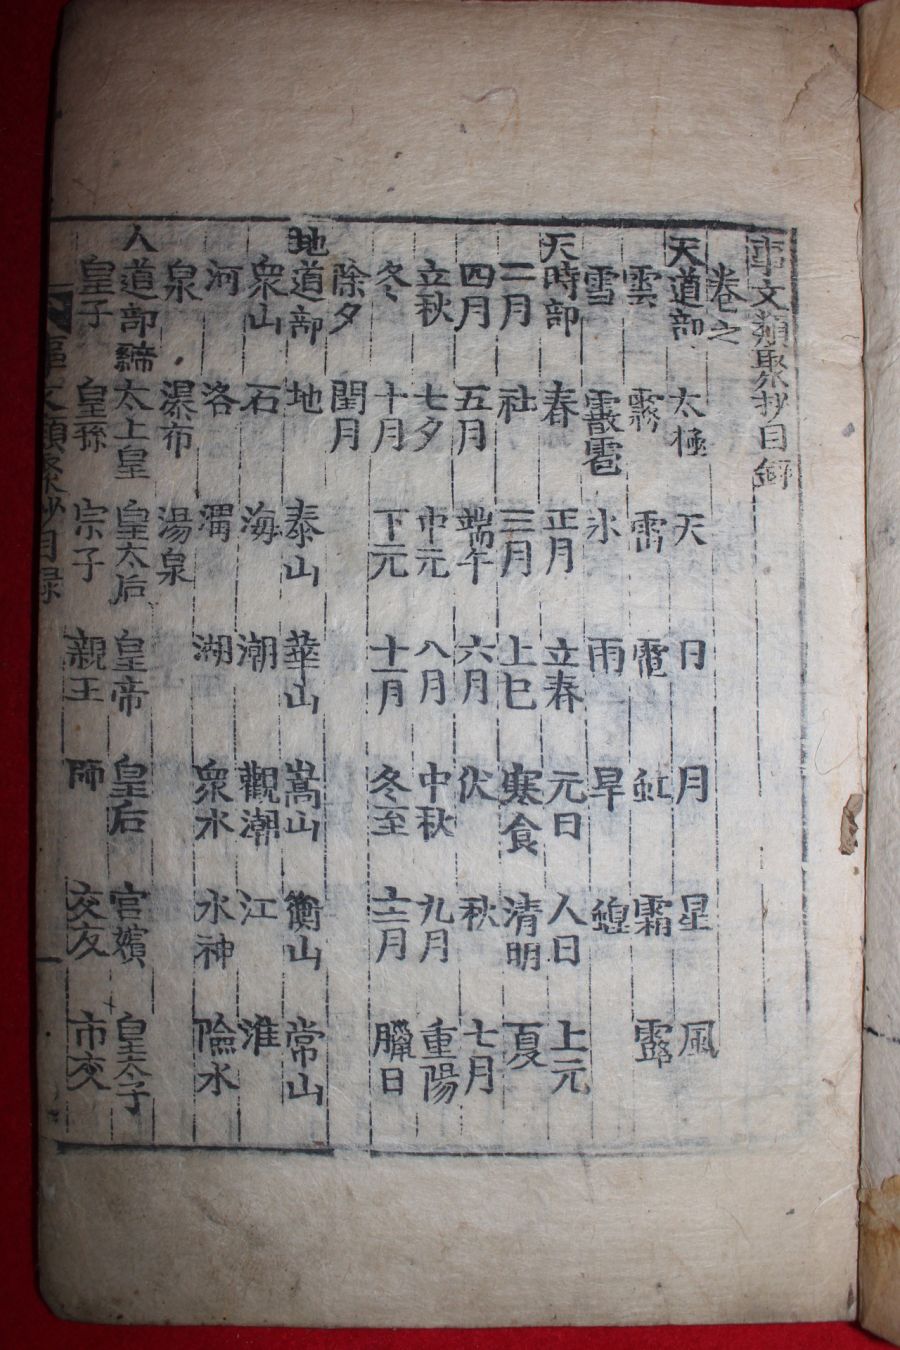 事文類聚抄目錄
卷之
天道部 太極 天 日 月 星 風
雲 霧 雷 電 虹 霜 露
雪 霰雹 氷 雨 旱 蝗
天時部 春 正月 立春 元日 人日 上元
二月 社 三月 上巳 寒食 清明 夏
四月 五月 端午 六月 伏 秋 七月
立秋 七夕 中元 八月 中秋 九月 重陽
冬 十月 下元 十一月 冬至 十二月 臘日
除夕 閏月
地道部 地 泰山 華山 嵩山 衡山 常山
衆山 石 海 潮 觀潮 江 淮
河 洛 渭 湖 衆水 水神 險水
泉 瀑布 湯泉
人道部 太上皇 皇太后 皇帝 皇后 宮嬪 皇太子
皇子 皇孫 宗子 親王 師 交友 市交
事文類聚抄目録 一